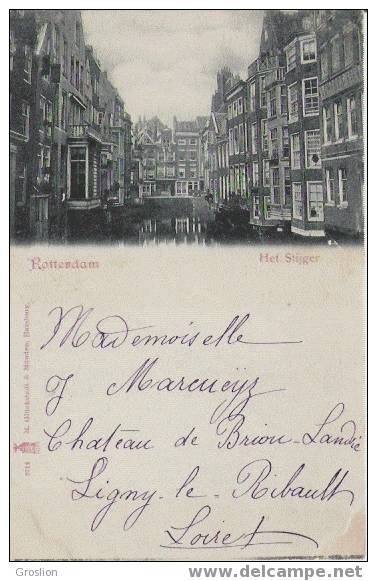 Rotterdam
Het Stijger
Mademoiselle
J Marcueyz
Chateau de Briou-Landie
Ligny-le-Ribault
Loiret
M. Glückstadt & Münden, Hamburg.
Groslion